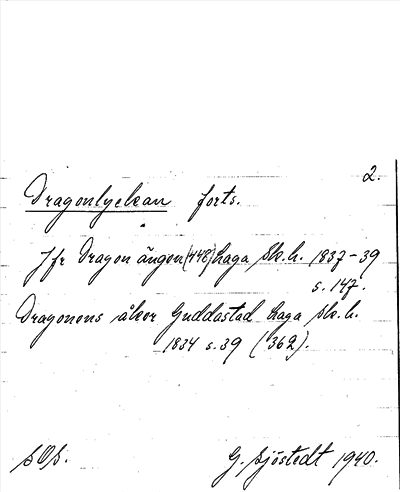 2.
Dragonlyckan forts.
Jfr Dragon ängen (448) Laga Sk. h. 1837-39
s. 147.
Dragonens åker Guddastad Laga Sk. h.
1834 s. 39 (362).
SOS.
G. Sjöstedt 1940.